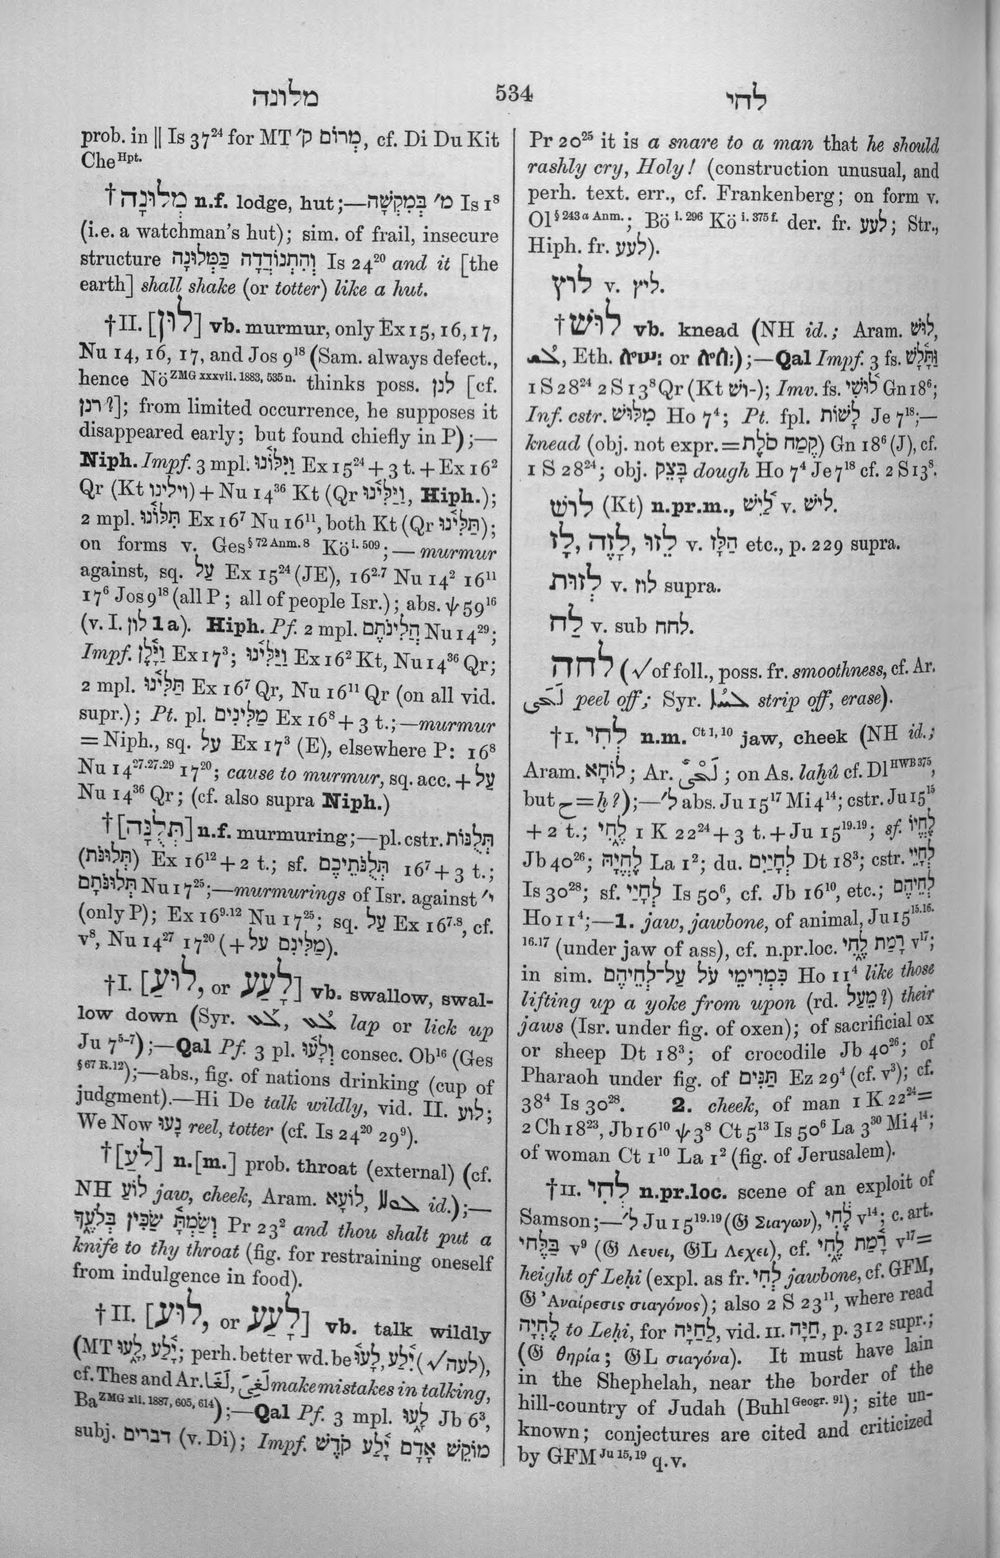 מלונה 534 לחי
prob. in || Is 37²⁴ for MT מְרוֹם ק׳, cf. Di Du Kit
Che Hpt.
† מְלוּנָה n.f. lodge, hut;—מ׳ בְּמִקְשָׁה Is 1⁸
(i.e. a watchman's hut); sim. of frail, insecure
structure וְהִתְנוֹדְדָה כַּמְּלוּנָה Is 24²⁰ and it [the
earth] shall shake (or totter) like a hut.
†II. [לוּן] vb. murmur, only Ex 15, 16, 17,
Nu 14, 16, 17, and Jos 9¹⁸ (Sam. always defect.,
hence Nö ZMG xxxvii. 1883, 535 n. thinks poss. לנן [cf.
רנן ?]; from limited occurrence, he supposes it
disappeared early; but found chiefly in P);—
Niph. Impf. 3 mpl. וַיִּלּוֹנוּ Ex 15²⁴ + 3 t. + Ex 16²
Qr (Kt וילינו) + Nu 14³⁶ Kt (Qr וַיַּלִּינוּ, Hiph.);
2 mpl. תִּלּוֹנוּ Ex 16⁷ Nu 16¹¹, both Kt (Qr תַלִּינוּ);
on forms v. Ges § 72 Anm. 8 Kö i. 509;—murmur
against, sq. עַל Ex 15²⁴ (JE), 16²·⁷ Nu 14² 16¹¹
17⁶ Jos 9¹⁸ (all P; all of people Isr.); abs. ψ 59¹⁶
(v. I. לון 1 a). Hiph. Pf. 2 mpl. הֲלִינֹתֶם Nu 14²⁹;
Impf. וַיָּלֶן Ex 17³; וַיַּלִּינוּ Ex 16² Kt, Nu 14³⁶ Qr;
2 mpl. תַלִּינוּ Ex 16⁷ Qr, Nu 16¹¹ Qr (on all vid.
supr.); Pt. pl. מַלִּינִים Ex 16⁸ + 3 t.;—murmur
= Niph., sq. עַל Ex 17³ (E), elsewhere P: 16⁸
Nu 14²⁷·²⁷·²⁹ 17²⁰; cause to murmur, sq. acc. + עַל
Nu 14³⁶ Qr; (cf. also supra Niph.)
† [תְּלֻנָּה] n.f. murmuring;—pl. cstr. תְּלֻנּוֹת
(תְּלוּנֹּת) Ex 16¹² + 2 t.; sf. תְּלֻנֹּתֵיכֶם 16⁷ + 3 t.;
תְּלוּנֹּתָם Nu 17²⁵;—murmurings of Isr. against י׳
(only P); Ex 16⁹·¹² Nu 17²⁵; sq. עַל Ex 16⁷·⁸, cf.
v⁸, Nu 14²⁷ 17²⁰ (+ מַלִּינִם עַל).
†I. [לוּעַ, or לָעַע] vb. swallow, swal-
low down (Syr. lap or lick up
Ju 7⁵⁻⁷);—Qal Pf. 3 pl. וְלָעוּ consec. Ob¹⁶ (Ges
§ 67 R. 12);—abs., fig. of nations drinking (cup of
judgment).—Hi De talk wildly, vid. II. לוע;
We Now נָעוּ reel, totter (cf. Is 24²⁰ 29⁹).
† [לֹעַ] n.[m.] prob. throat (external) (cf.
NH לוֹעַ jaw, cheek, Aram. לוֹעָא, id.);—
וְשַׂמְתָּ שַׂכִּין בְּלֹעֶךָ Pr 23² and thou shalt put a
knife to thy throat (fig. for restraining oneself
from indulgence in food).
†II. [לוּעַ, or לָעַע] vb. talk wildly
(MT לָעוּ, יָלַע; perh. better wd. be לָעוּ, יִלַע (√לעה),
cf. Thes and Ar. لَغَا, لَغِىَ make mistakes in talking,
Ba ZMG xli. 1887, 605, 614);—Qal Pf. 3 mpl. לָעוּ Jb 6³,
subj. דברים (v. Di); Impf. מוֹקֵשׁ אָדָם יָלַע קֹדֶשׁ
Pr 20²⁵ it is a snare to a man that he should
rashly cry, Holy! (construction unusual, and
perh. text. err., cf. Frankenberg; on form v.
Ol § 243 a Anm.; Bö i. 296 Kö i. 375 f. der. fr. לעע; Str.,
Hiph. fr. לעע).
לוץ v. ליץ.
† לוּשׁ vb. knead (NH id.; Aram. לוּשׁ,
Eth. ሎሠ: or ሎሰ:);—Qal Impf. 3 fs. וַתָּלָשׁ
1 S 28²⁴ 2 S 13⁸ Qr (Kt ‎-וש); Imv. fs. לוּשִׁי Gn 18⁶;
Inf. cstr. מִלּוּשׁ Ho 7⁴; Pt. fpl. לָשׁוֹת Je 7¹⁸;—
knead (obj. not expr. = קֶמַח סֹלֶת) Gn 18⁶ (J), cf.
1 S 28²⁴; obj. בָּצֵק dough Ho 7⁴ Je 7¹⁸ cf. 2 S 13⁸.
לוּשׁ (Kt) n.pr.m., לַיִשׁ v. ליש.
לָז, לָזֶה, לֵזוּ v. הַלָּז etc., p. 229 supra.
לְזוּת v. לוז supra.
לַח v. sub לחח.
לחה (√ of foll., poss. fr. smoothness, cf. Ar.
لَحَى peel off; Syr. strip off, erase).
†I. לְחִי n.m. Ct 1, 10 jaw, cheek (NH id.;
Aram. לוֹחָא; Ar. لَحْىٌ; on As. laḫû cf. Dl HWB 375,
but خ = ḫ ?);—ל׳ abs. Ju 15¹⁷ Mi 4¹⁴; cstr. Ju 15¹⁵
+ 2 t.; לֶחִי 1 K 22²⁴ + 3 t. + Ju 15¹⁹·¹⁹; sf. לֶחֱיוֹ
Jb 40²⁶; לֶחֱיָהּ La 1²; du. לְחָיַיִם Dt 18³; cstr. לְחָיֵי
Is 30²⁸; sf. לְחָיַי Is 50⁶, cf. Jb 16¹⁰, etc.; לְחֵיהֶם
Ho 11⁴;—1. jaw, jawbone, of animal, Ju 15¹⁵·¹⁶·
¹⁶·¹⁷ (under jaw of ass), cf. n.pr.loc. רָמַת לֶחִי v¹⁷;
in sim. כִּמְרִימֵי עֹל עַל־לְחֵיהֶם Ho 11⁴ like those
lifting up a yoke from upon (rd. מֵעַל ?) their
jaws (Isr. under fig. of oxen); of sacrificial ox
or sheep Dt 18³; of crocodile Jb 40²⁶; of
Pharaoh under fig. of תַּנִּים Ez 29⁴ (cf. v³); cf.
38⁴ Is 30²⁸. 2. cheek, of man 1 K 22²⁴ =
2 Ch 18²³, Jb 16¹⁰ ψ 3⁸ Ct 5¹³ Is 50⁶ La 3³⁰ Mi 4¹⁴;
of woman Ct 1¹⁰ La 1² (fig. of Jerusalem).
†II. לְחִי n.pr.loc. scene of an exploit of
Samson;—ל׳ Ju 15¹⁹·¹⁹ (𝔊 Σιαγων), לֶחִי v¹⁴; c. art.
בַּלֶּחִי v⁹ (𝔊 Λευει, 𝔊L Λεχει), cf. רָמַת לֶחִי v¹⁷ =
height of Leḥi (expl. as fr. לְחִי jawbone, cf. GFM,
𝔊 Ἀναίρεσις σιαγόνος); also 2 S 23¹¹, where read
לֶחְיָה to Leḥi, for לַחַיָּה, vid. II. חַיָּה, p. 312 supr.;
(𝔊 θηρία; 𝔊L σιαγόνα). It must have lain
in the Shephelah, near the border of the
hill-country of Judah (Buhl Geogr. 91); site un-
known; conjectures are cited and criticized
by GFM Ju 15, 19 q.v.